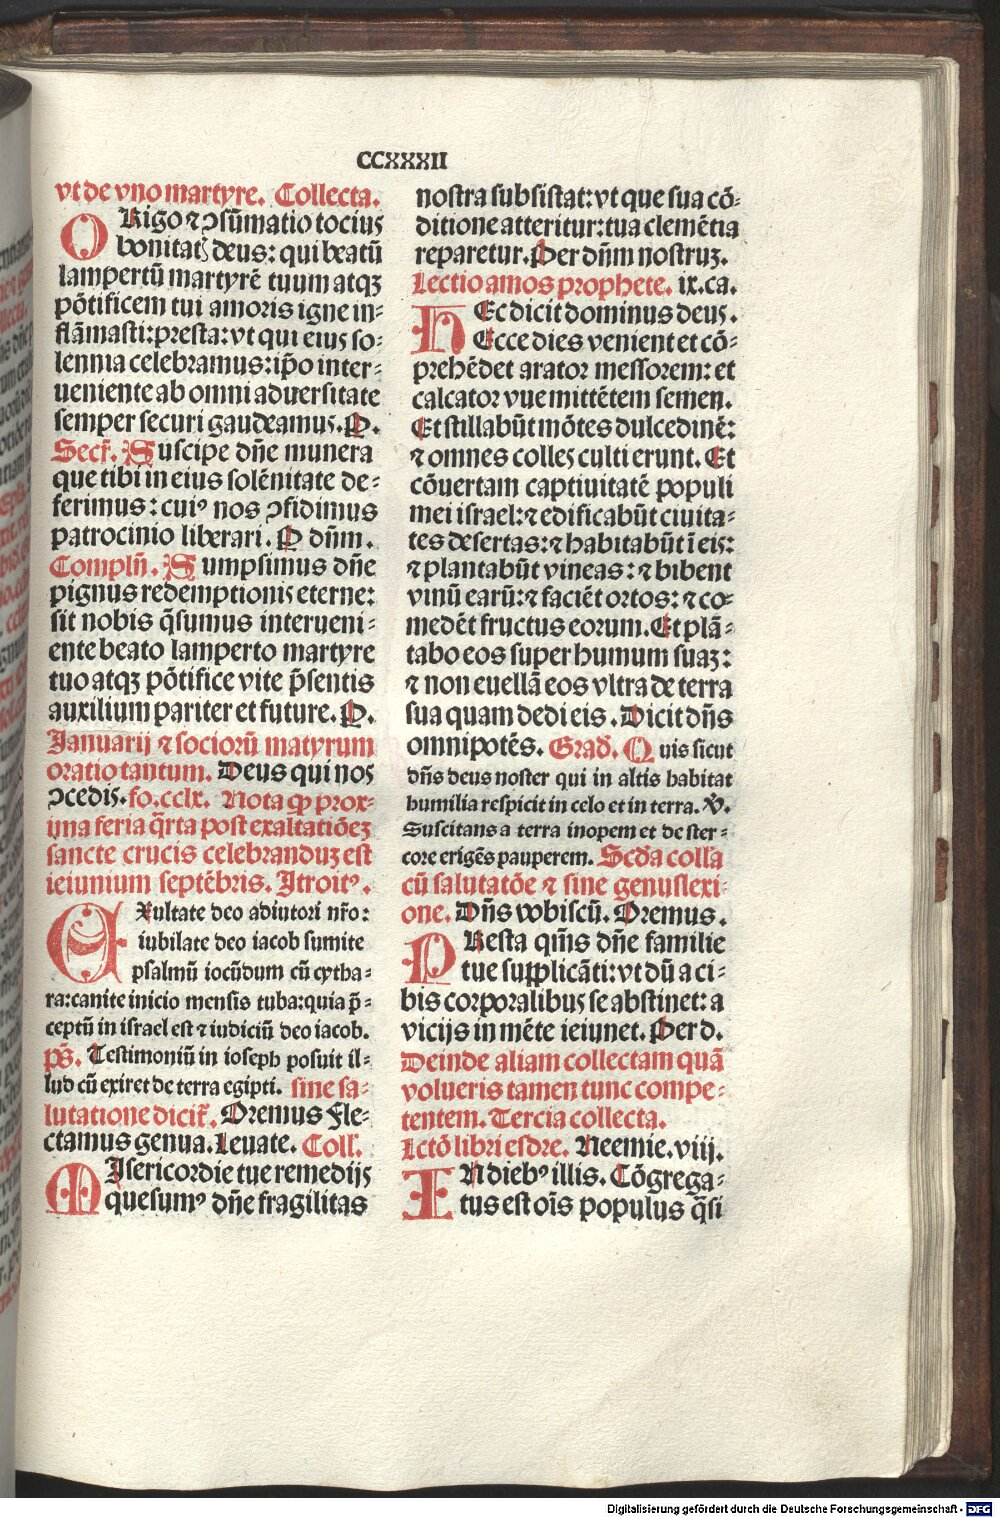 CCXXXII
vt de vno martyre. Collecta.
ORigo ⁊ ↄsūmatio tocius
bonitatꝭ deus: qui beatū
lampertū martyrē tuum atqꝫ
pōtificem tui amoris igne in⸗
flāmasti: presta: vt qui eius so⸗
lennia celebramus: ip̄o inter⸗
ueniente ab omni aduersitate
semper securi gaudeamus. P.
Secr̄. Suscipe dn̄e munera
que tibi in eius solēnitate de⸗
ferimus: cuiꝰ nos ↄfidimus
patrocinio liberari. P dn̄m.
Compln̄. Sumpsimus dn̄e
pignus redemptionis eterne:
sit nobis q̄sumus interueni⸗
ente beato lamperto martyre
tuo atqꝫ pōtifice vite p̄sentis
auxilium pariter et future. P.
Januarij ⁊ sociorū matyrum
oratio tantum. Deus qui nos
ↄcedis. fo. cclx. Nota qꝙ prox⸗
ima feria q̄rta post exaltatiōeꝫ
sancte crucis celebranduꝫ est
ieiunium septēbris. Jtroitꝰ.
EXultate deo adiutori nr̄o:
iubilate deo iacob sumite
psalmū iocūdum cū cytha⸗
ra: canite inicio mensis tuba: quia p̄⸗
ceptū in israel est ⁊ iudiciū deo iacob.
ps̄. Testimoniū in ioseph posuit il⸗
lud cū exiret de terra egipti. sine sa⸗
lutatione dicit̄. Oremus Fle⸗
ctamus genua. Leuate. Coll̄.
MIsericordie tue remedijs
quesumꝰ dn̄e fragilitas
nostra subsistat: vt que sua cō⸗
ditione atteritur: tua clemētia
reparetur. Per dn̄m nostruꝫ.
Lectio amos prophete. ix. ca.
HEc dicit dominus deus.
Ecce dies venient et cō⸗
prehēdet arator messorem: et
calcator vue mittētem semen.
Et stillabūt mōtes dulcedinē:
⁊ omnes colles culti erunt. Et
cōuertam captiuitatē populi
mei israel: ⁊ edificabūt ciuita⸗
tes desertas: ⁊ habitabūt ī eis:
⁊ plantabūt vineas: ⁊ bibent
vinū earū: ⁊ faciēt ortos: ⁊ co⸗
medēt fructus eorum. Et plā⸗
tabo eos super humum suaꝫ:
⁊ non euellā eos vltra de terra
sua quam dedi eis. Dicit dn̄s
omnipotēs. Grad̄. Quis sicut
dn̄s deus noster qui in altis habitat
humilia respicit in celo et in terra. V̄.
Suscitans a terra inopem et de ster⸗
core erigēs pauperem. Scd̄a coll̄a
cū salutatōe ⁊ sine genuflexi⸗
one. Dn̄s vobiscū. Oremus.
PResta qm̄s dn̄e familie
tue supplicāti: vt dū a ci⸗
bis corporalibus se abstinet: a
vicijs in mēte ieiunet. Per d.
Deinde aliam collectam quā
volueris tamen tunc compe⸗
tentem. Tercia collecta.
Lctō libri esdre. Neemie. viij.
IN diebꝰ illis. Cōgrega⸗
tus est oīs populus q̄si
Digitalisierung gefördert durch die Deutsche Forschungsgemeinschaft - DFG